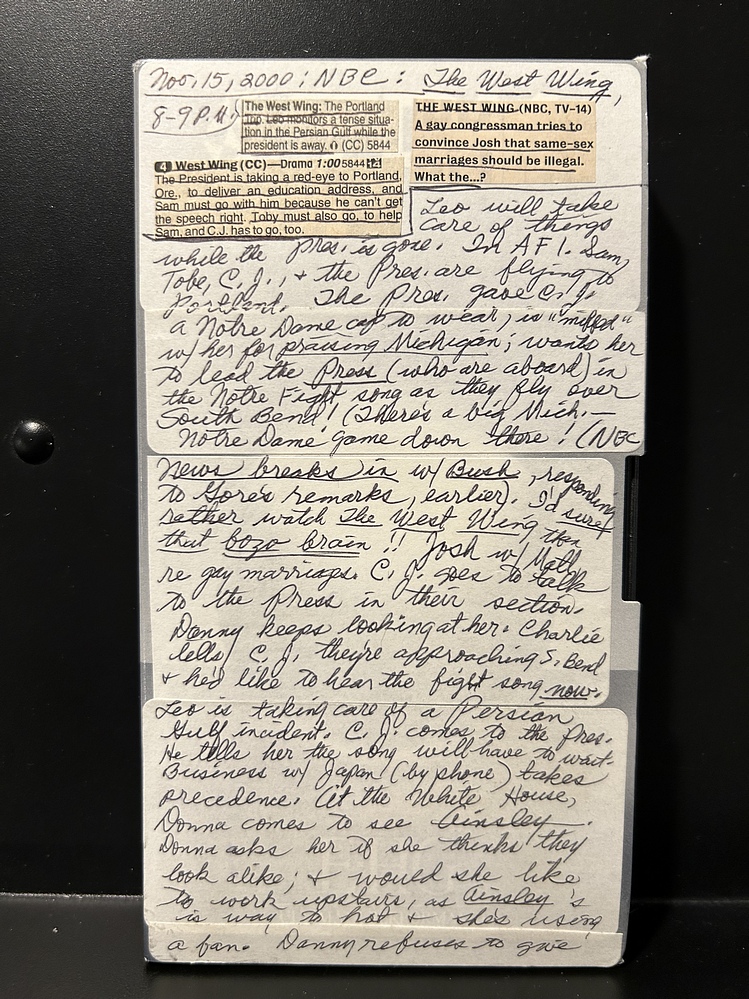 Nov. 15, 2000: NBC: The West Wing,
8-9 P.M.
The West Wing: The Portland
Trip. Leo monitors a tense situa-
tion in the Persian Gulf while the
president is away. (CC) 5844
THE WEST WING (NBC, TV-14)
A gay congressman tries to
convince Josh that same-sex
marriages should be illegal.
What the...?
4 West Wing (CC)—Drama 1:00 5844
The President is taking a red-eye to Portland,
Ore., to deliver an education address, and
Sam must go with him because he can't get
the speech right. Toby must also go, to help
Sam, and C.J. has to go, too.
Leo will take
care of things
while the Pres. is gone. In AF1. Sam,
Tobe, C.J., + the Pres. are flying to
Portland. The Pres. gave C.J.
a Notre Dame cap to wear, is "miffed"
w/ her for praising Michigan; wants her
to lead the Press (who are aboard) in
the Notre Fight song as they fly over
South Bend! (There's a big Mich.—
Notre Dame game down there! (NBC
News breaks in w/ Bush, responding
to Gore's remarks, earlier). I'd sure
rather watch The West Wing than
that bozo brain!! Josh w/ Matt
re gay marriage. C.J. goes to talk
to the Press in their section.
Danny keeps looking at her. Charlie
tells C.J. they're approaching S. Bend
+ he'd like to hear the fight song now.
Leo is taking care of a Persian
Gulf incident. C.J. comes to the Pres.
He tells her the song will have to wait.
Business w/ Japan (by phone) takes
precedence. At the White House,
Donna comes to see Ainsley.
Donna asks her if she thinks they
look alike; + would she like
to work upstairs, as Ainsley's
is way to hot + she's using
a fan. Danny refuses to give